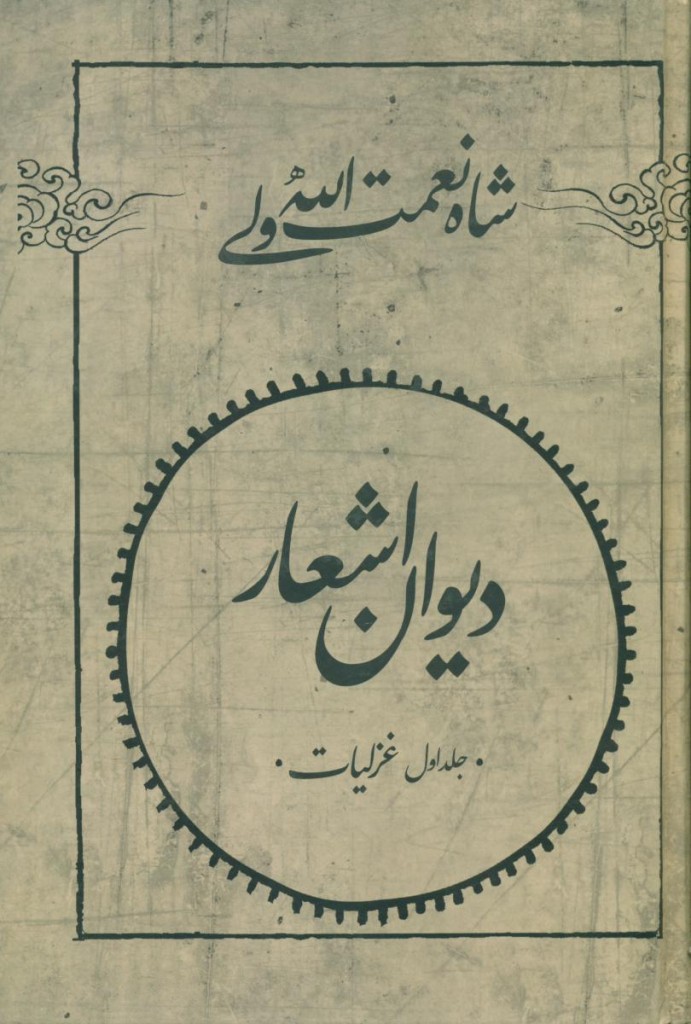 شاه نعمت الله ولی
دیوان اشعار
• جلد اول غزلیات •